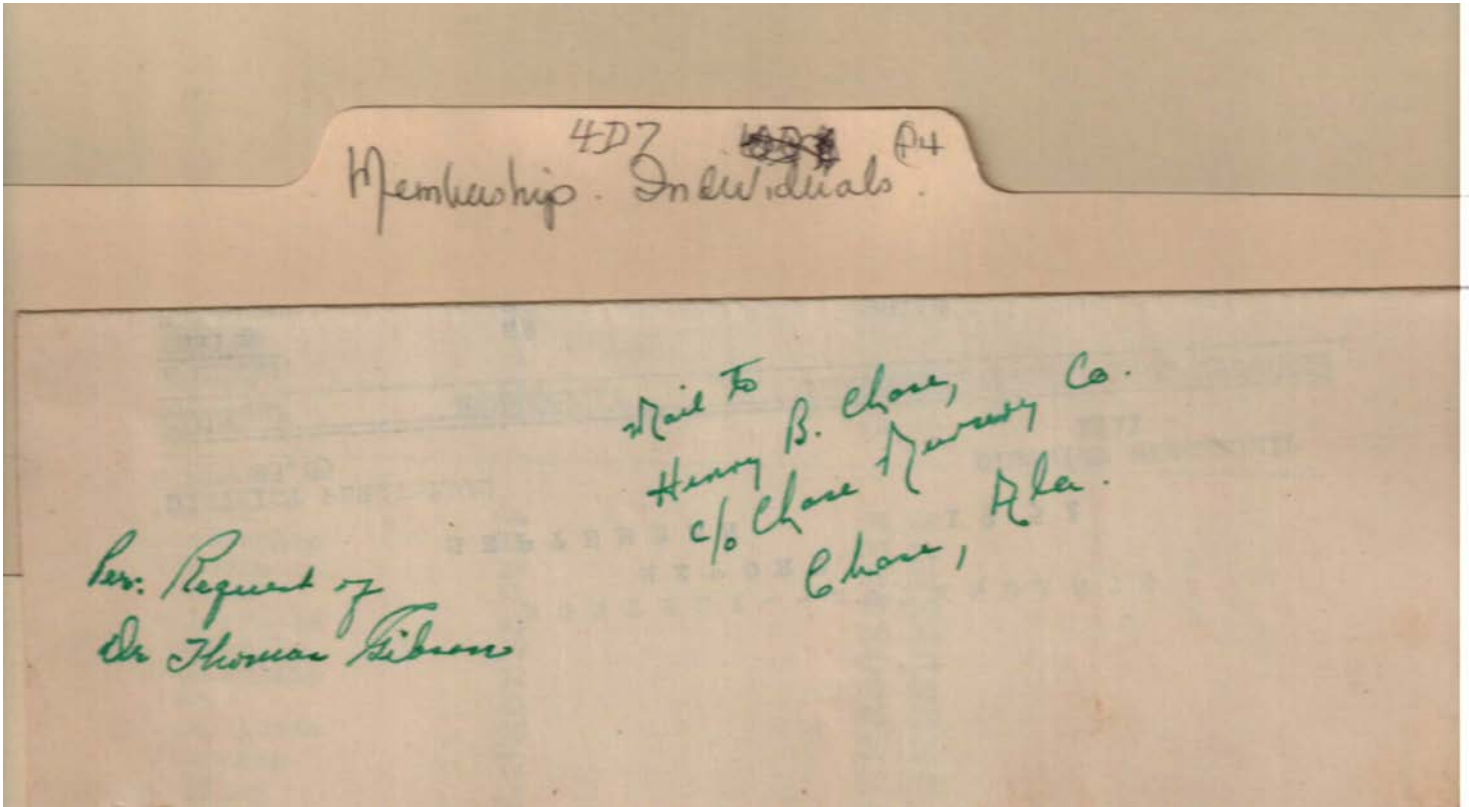 4D7 P4
Membership. Individuals.
Mail To
Henry B. Chase,
c/o Chase Nursery Co.
Chase, Ala.
Per: Request of
Dr Thomas Gibson